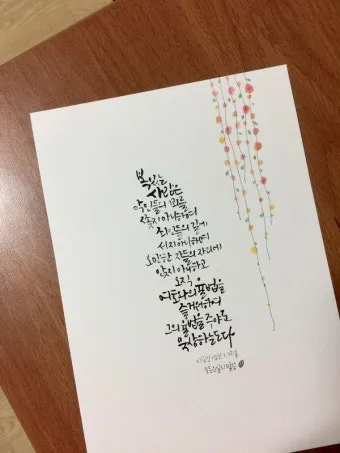 복있는
사람은
악인들의 꾀를
쫓지 아니하며
죄인들의 길에
서지 아니하며
오만한 자들의 자리에
앉지 아니하고
오직
여호와의 율법을
즐거워하여
그의 율법을 주야로
묵상하는도다
시편 1편 1,2절